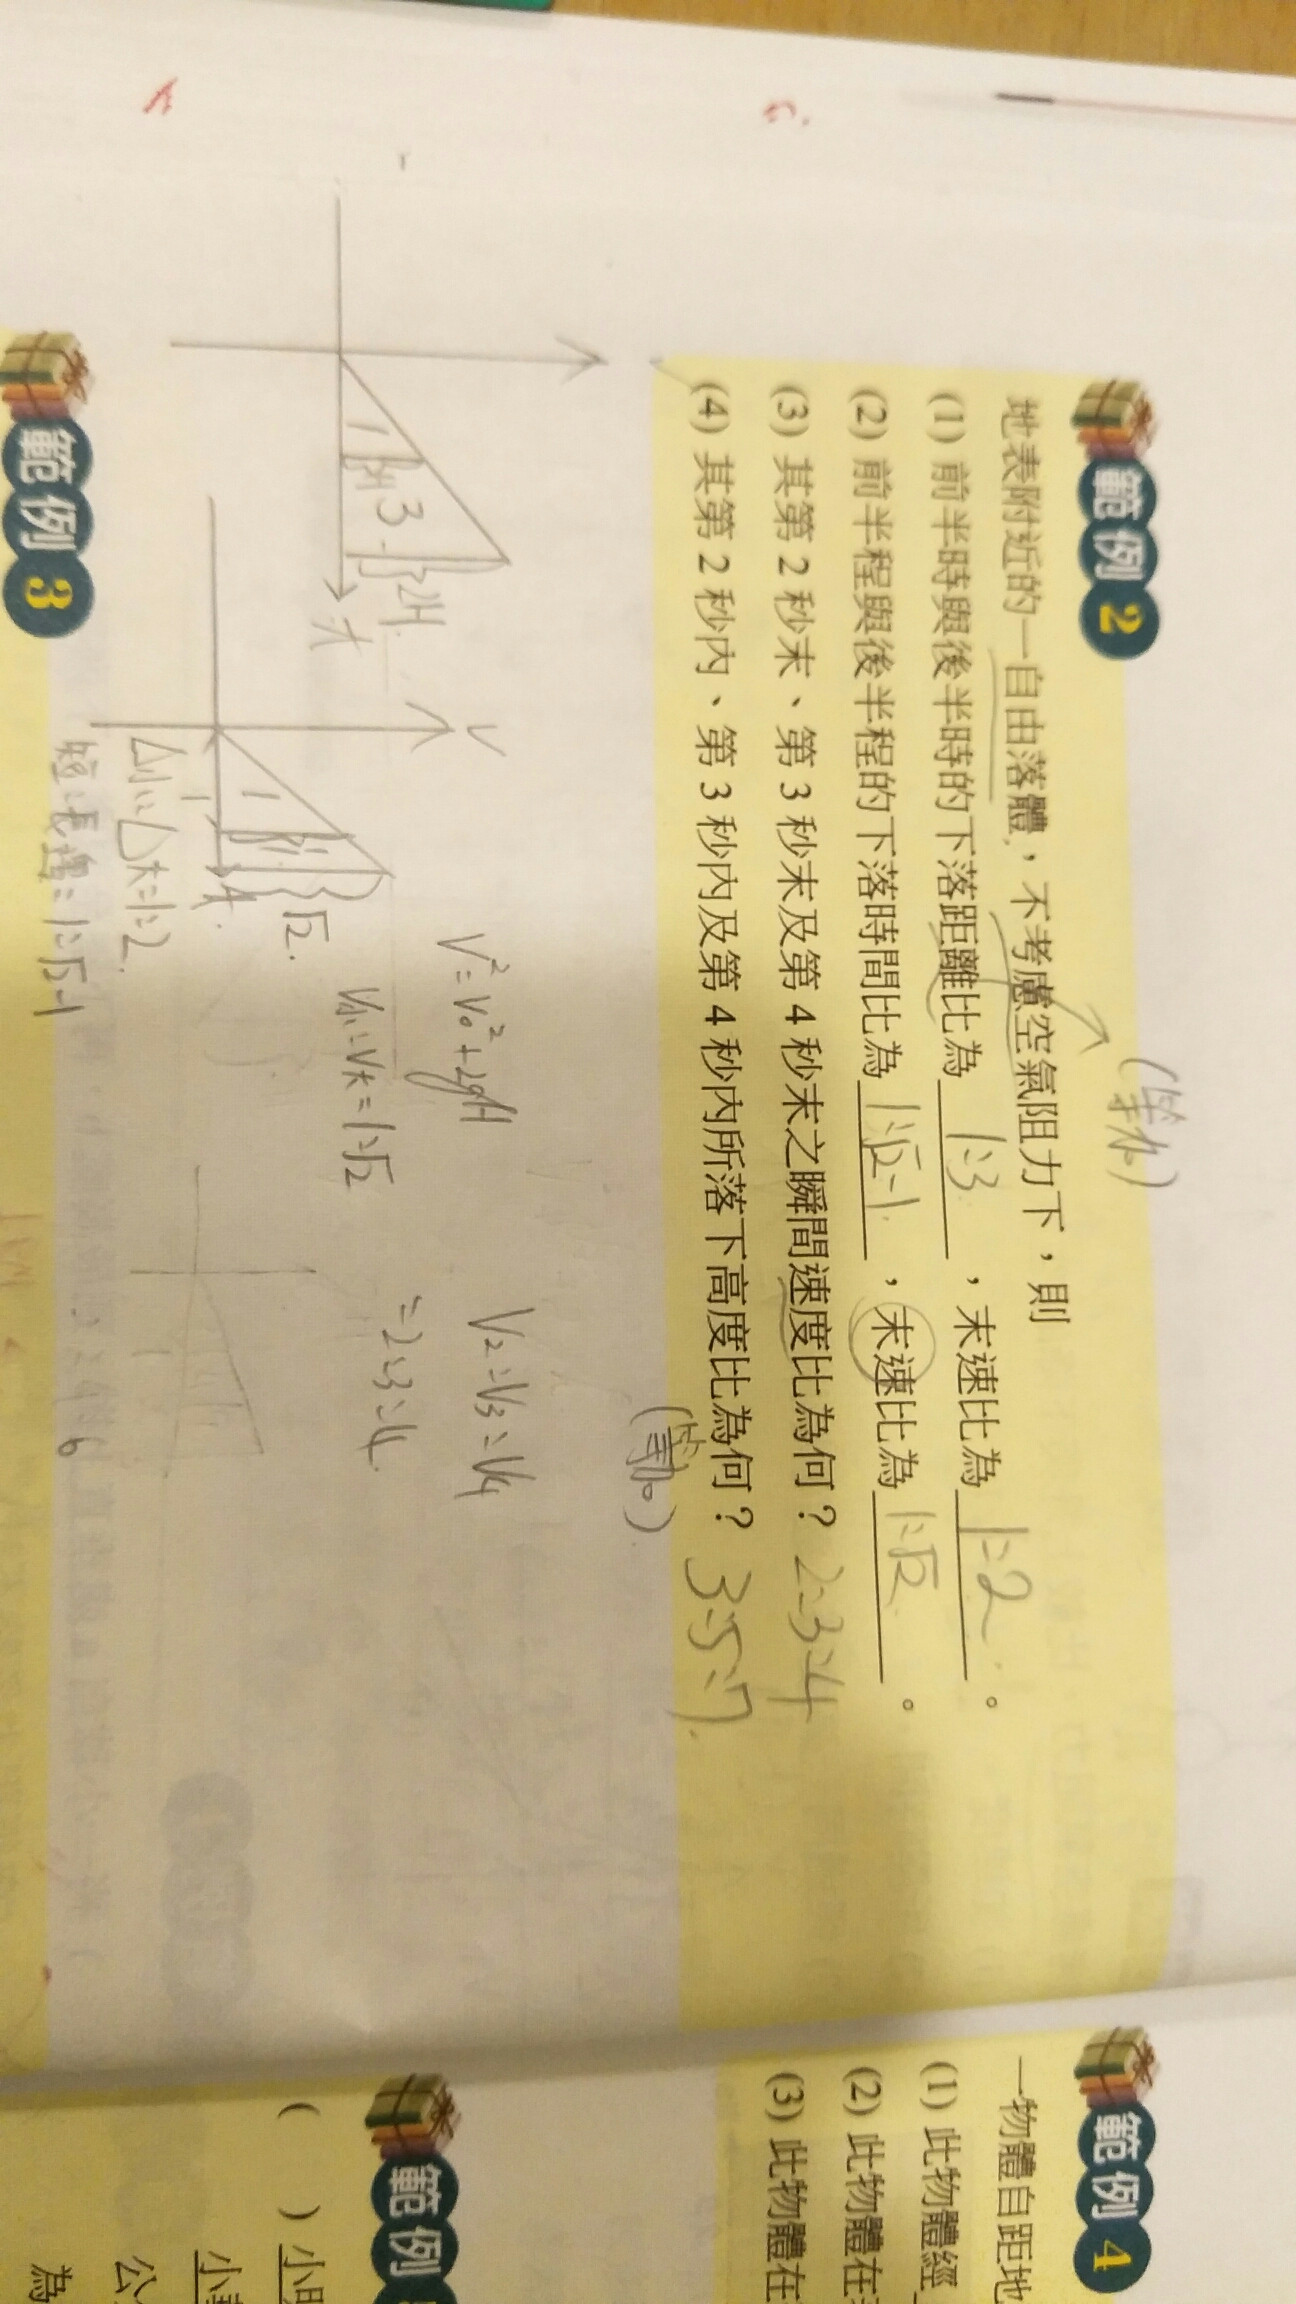 範例 2
(等加)
地表附近的一自由落體，不考慮空氣阻力下，則
(1) 前半時與後半時的下落距離比為 1:3 ，末速比為 1:2 。
(2) 前半程與後半程的下落時間比為 1:√2-1 ，末速比為 1:√2 。
(3) 其第 2 秒末、第 3 秒末及第 4 秒末之瞬間速度比為何？ 2:3:4
(4) 其第 2 秒內、第 3 秒內及第 4 秒內所落下高度比為何？ 3:5:7
(等加)
1 3
2H
t
V
1 1
√2
t
V²=V₀²+2gH
V小:V大=1:√2
V2:V3:V4
=2:3:4
△小:△大=1:2
短:長邊=1:√2-1
範例 3
範例 4
一物體自距地
(1) 此物體經
(2) 此物體在
(3) 此物體在
範例
( )
公
為